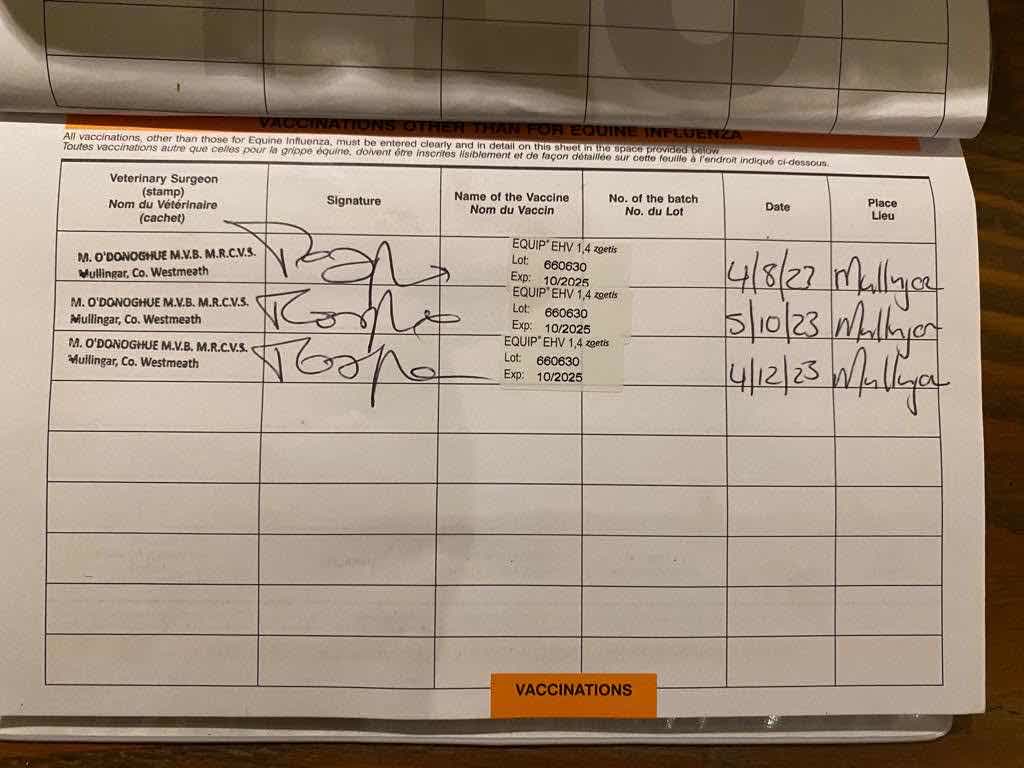 VACCINATIONS OTHER THAN FOR EQUINE INFLUENZA
All vaccinations, other than those for Equine Influenza, must be entered clearly and in detail on this sheet in the space provided below
Toutes vaccinations autre que celles pour la grippe équine, doivent être inscrites lisiblement et de façon détaillée sur cette feuille à l'endroit indiqué ci-dessous.
Veterinary Surgeon
(stamp)
Nom du Vétérinaire
(cachet)
Signature
Name of the Vaccine
Nom du Vaccin
No. of the batch
No. du Lot
Date
Place
Lieu
M. O'DONOGHUE M.V.B. M.R.C.V.S.
Mullingar, Co. Westmeath
EQUIP® EHV 1,4 zoetis
Lot: 660630
Exp: 10/2025
4/8/23
Mullingar
M. O'DONOGHUE M.V.B. M.R.C.V.S.
Mullingar, Co. Westmeath
EQUIP® EHV 1,4 zoetis
Lot: 660630
Exp: 10/2025
5/10/23
Mullingar
M. O'DONOGHUE M.V.B. M.R.C.V.S.
Mullingar, Co. Westmeath
EQUIP® EHV 1,4 zoetis
Lot: 660630
Exp: 10/2025
4/12/23
Mullingar
VACCINATIONS